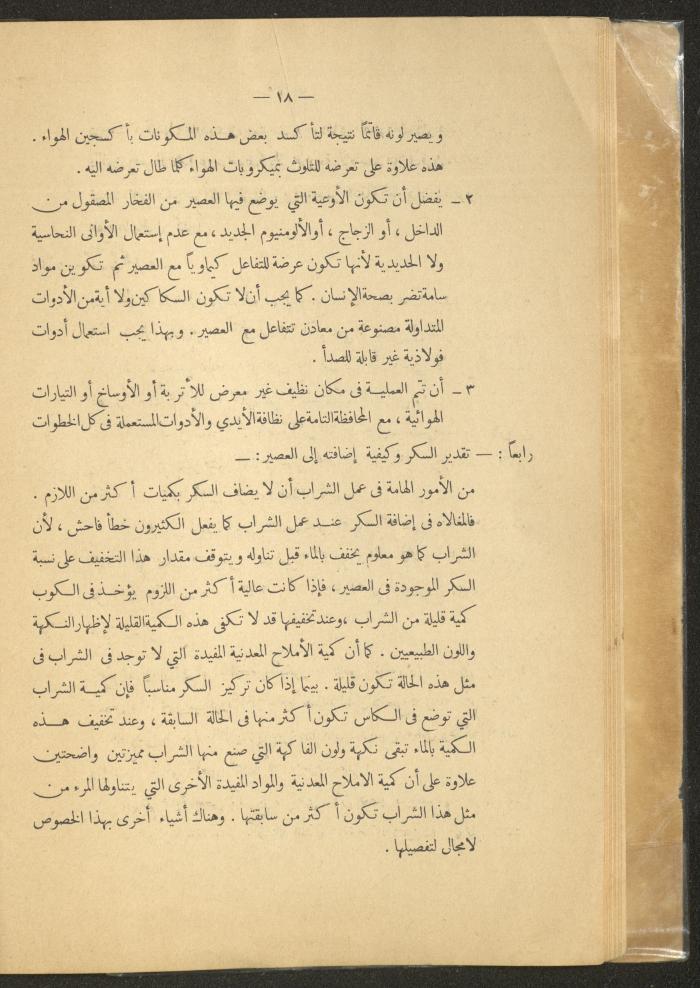 — ١٨ —
ويصير لونه قاتمًا نتيجة لتأكسد بعض هذه المكونات بأكسجين الهواء .
هذه علاوة على تعرضه للتلوث بميكروبات الهواء كلما طال تعرضه اليه .
٢ ــ يفضل أن تكون الأوعية التي يوضع فيها العصير من الفخار المصقول من
الداخل ، أو الزجاج ، أوالألومنيوم الجديد ، مع عدم إستعمال الأوانى النحاسية
ولا الحديدية لأنها تكون عرضة للتفاعل كيماوياً مع العصير ثم تكوين مواد
سامة تضر بصحة الإنسان . كما يجب أن لا تكون السكاكين ولا أية من الأدوات
المتداولة مصنوعة من معادن تتفاعل مع العصير . وبهذا يجب استعمال أدوات
فولاذية غير قابلة للصدأ .
٣ ــ أن تتم العملية فى مكان نظيف غير معرض للأتربة أو الأوساخ أو التيارات
الهوائية ، مع المحافظة التامة على نظافة الأيدي والأدوات المستعملة فى كل الخطوات
رابعاً : — تقدير السكر وكيفية إضافته إلى العصير : ــ
من الأمور الهامة فى عمل الشراب أن لا يضاف السكر بكميات أكثر من اللازم .
فالمغالاه فى إضافة السكر عند عمل الشراب كما يفعل الكثيرون خطأ فاحش ، لأن
الشراب كما هو معلوم يخفف بالماء قبل تناوله ويتوقف مقدار هذا التخفيف على نسبة
السكر الموجودة فى العصير ، فإذا كانت عالية أكثر من اللزوم يؤخذ فى الكوب
كمية قليلة من الشراب ، وعند تخفيفها قد لا تكفى هذه الكمية القليلة لإظهار النكهة
واللون الطبيعيين . كما أن كمية الأملاح المعدنية المفيدة التي لا توجد فى الشراب فى
مثل هذه الحالة تكون قليلة . بينما إذا كان تركيز السكر مناسباً فإن كمية الشراب
التي توضع فى الكاس تكون أكثر منها فى الحالة السابقة ، وعند تخفيف هذه
الكمية بالماء تبقى نكهة ولون الفاكهة التي صنع منها الشراب مميزتين واضحتين
علاوة على أن كمية الاملاح المعدنية والمواد المفيدة الأخرى التي يتناولها المرء من
مثل هذا الشراب تكون أكثر من سابقتها . وهناك أشياء أخرى بهذا الخصوص
لا مجال لتفصيلها .